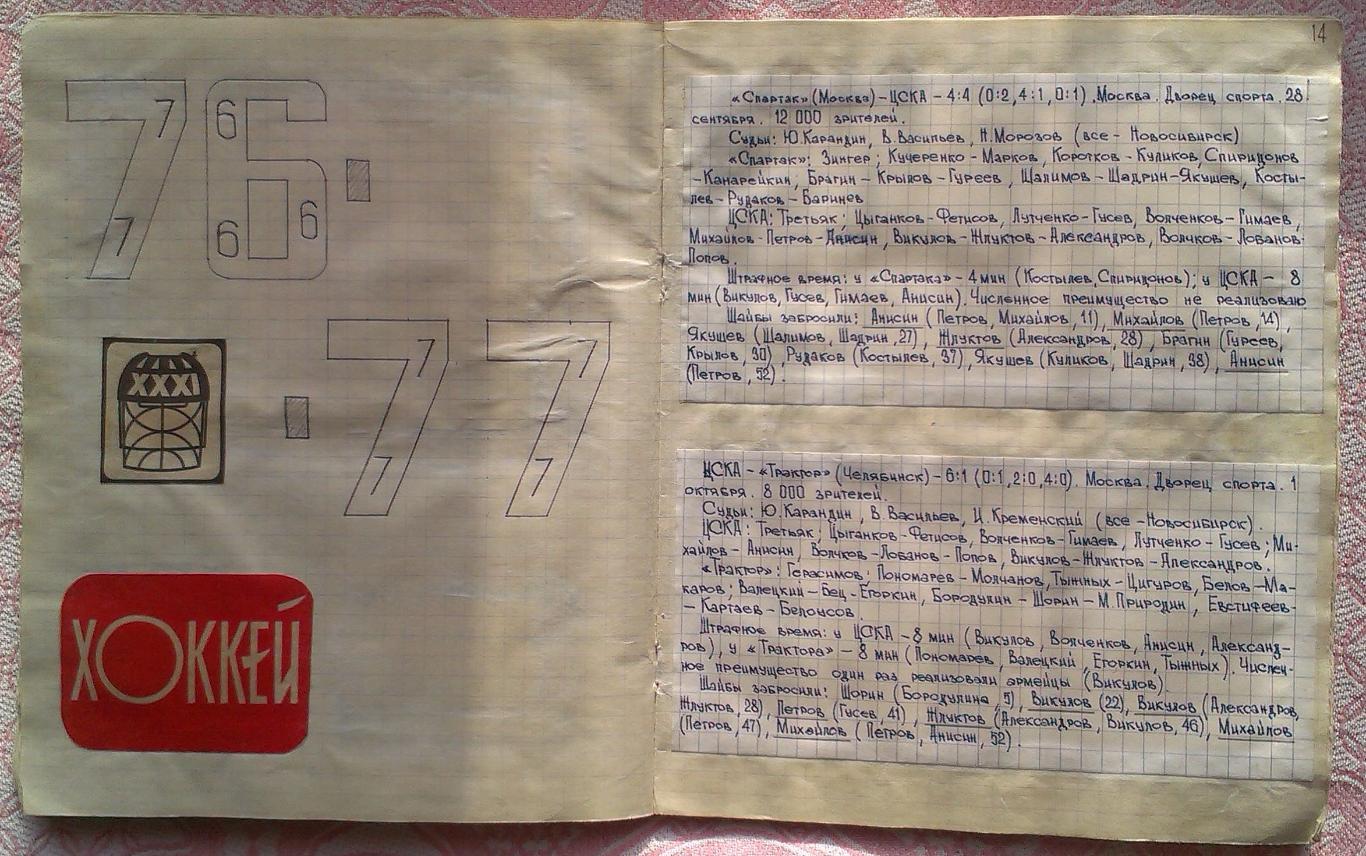 76
7
7
6
6
6
XXXI
77
7
7
7
7
ХОККЕЙ
14
«Спартак» (Москва) – ЦСКА – 4:4 (0:2, 4:1, 0:1). Москва. Дворец спорта. 28
сентября. 12 000 зрителей.
Судьи: Ю.Карандин, В.Васильев, Н.Морозов (все – Новосибирск)
«Спартак»: Зингер; Кучеренко – Марков, Коротков – Куликов, Спиридонов
– Канарейкин, Брагин – Крылов – Гуреев, Шалимов – Шадрин – Якушев, Косты-
лев – Рудаков – Баринев
ЦСКА: Третьяк; Цыганков – Фетисов, Лутченко – Гусев, Волченков – Гимаев,
Михайлов – Петров – Анисин, Викулов – Жлуктов – Александров, Волчков – Лобанов-
Попов.
Штрафное время: у «Спартака» – 4 мин (Костылев, Спиридонов); у ЦСКА – 8
мин (Викулов, Гусев, Гимаев, Анисин). Численное преимущество не реализовано
Шайбы забросили: Анисин (Петров, Михайлов, 11), Михайлов (Петров, 14),
Якушев (Шалимов, Шадрин, 27), Жлуктов (Александров, 28), Брагин (Гуреев,
Крылов, 30), Рудаков (Костылев, 37), Якушев (Куликов, Шадрин, 38), Анисин
(Петров, 52).
ЦСКА – «Трактор» (Челябинск) – 6:1 (0:1, 2:0, 4:0). Москва. Дворец спорта. 1
октября. 8 000 зрителей.
Судьи: Ю.Карандин, В.Васильев, И.Кременский (все – Новосибирск).
ЦСКА: Третьяк; Цыганков – Фетисов, Волченков – Гимаев, Лутченко – Гусев; Ми-
хайлов – Анисин, Волчков – Лобанов – Попов, Викулов – Жлуктов – Александров.
«Трактор»: Герасимов; Пономарев – Молчанов, Тыжных – Цигуров, Белов – Ма-
каров; Валецкий – Бец – Егоркин, Бородулин – Шорин – М.Природин, Евстифеев –
– Картаев – Белоусов
Штрафное время: у ЦСКА – 8 мин (Викулов, Волченков, Анисин, Александ-
ров), у «Трактора» – 8 мин (Пономарев, Валецкий, Егоркин, Тыжных). Числен-
ное преимущество один раз реализовали армейцы (Викулов).
Шайбы забросили: Шорин (Бородулина, 5), Викулов (22), Викулов (Александров,
Жлуктов, 28), Петров (Гусев, 41), Жлуктов (Александров, Викулов, 46), Михайлов
(Петров, 47), Михайлов (Петров, Анисин, 52).